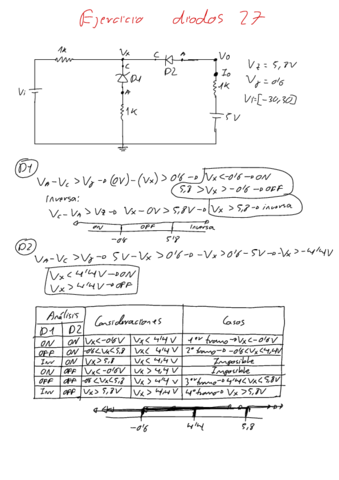 Ejercicio diodos 27
1k Vx C A Vo
C D2 Io
D1 1k
A
Vi 1K 5V
Vz = 5,8V
Vγ = 0'6
Vi=[-30,30]
D1
VA-VC > Vγ → (0V)-(Vx) > 0'6 → Vx<-0'6 → ON
5,8 > Vx > -0'6 → OFF
Inversa:
VC-VA > Vz → Vx-0V > 5,8V → Vx > 5,8 → inversa
ON OFF Inversa
-0'6 5'8
D2
VA-VC > Vγ → 5V-Vx > 0'6 → -Vx > 0'6-5V → -Vx > -4'4V
Vx < 4'4V → ON
Vx > 4'4V → OFF
Análisis Consideraciones Casos
D1 D2
ON ON Vx<-0'6V Vx < 4'4 V 1er tramo → Vx<-0'6V
OFF ON -0'6<Vx<5,8 Vx < 4'4 V 2º tramo → -0'6<Vx<4,4V
Inv ON Vx > 5,8 Vx < 4'4 V Imposible
ON OFF Vx<-0'6V Vx > 4,4 V Imposible
OFF OFF -0'6<Vx<5,8 Vx > 4'4 V 3er tramo → 4'4<Vx<5,8V
Inv OFF Vx > 5,8V Vx > 4,4V 4º tramo → Vx > 5,8V
-0'6 4'4 5,8